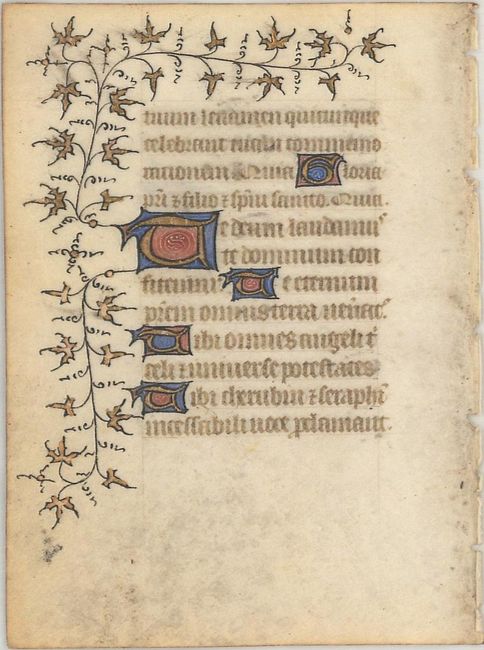 tuum leuamen quicunque
celebrant tuam commemo
rationem Quia Gloria
pri & filio & spui sancto. Quia.
Te deum laudamus
te dominum con
fitemur Te eternum
prem omnis terra uenerat.
Tibi omnes angeli t
celi & uniuerse potestates
Tibi cherubin & seraphi
incessabili uoce proclamant.